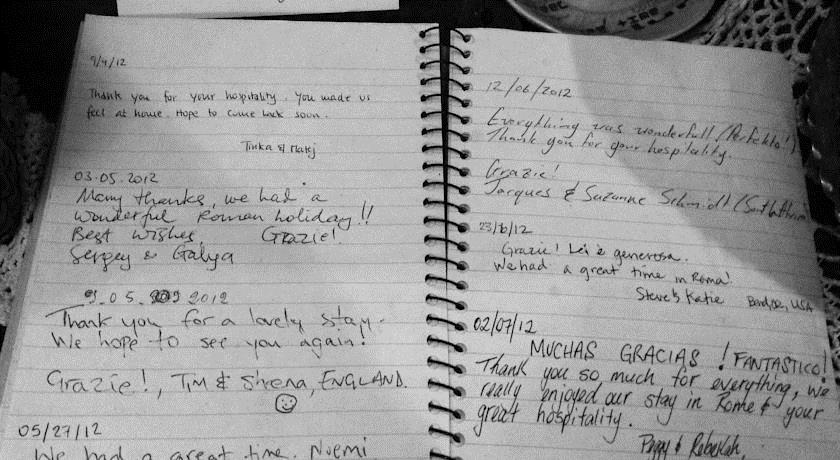 9/4/12
Thank you for your hospitality. You made us
feel at home. Hope to come back soon.
Tinka & Matej
03.05.2012
Many thanks, we had a
wonderful Roman holiday!!
Best wishes Grazie!
Sergey & Galya
9.05. 2012
Thank you for a lovely stay.
We hope to see you again!
Grazie!, Tim & Sheena, ENGLAND.
05/27/12
We had a great time. Noemi
12/06/2012
Everything was wonderfull. (Perfekto!)
Thank you for your hospitality.
Grazie!
Jacques & Suzanne Schmidt
23/6/12
Grazie! Lei è generosa.
We had a great time in Roma!
Steve & Katie USA
02/07/12
MUCHAS GRACIAS! FANTASTICO!
Thank you so much for everything, we
really enjoyed our stay in Rome & your
great hospitality.
Peggy & Rebekah.